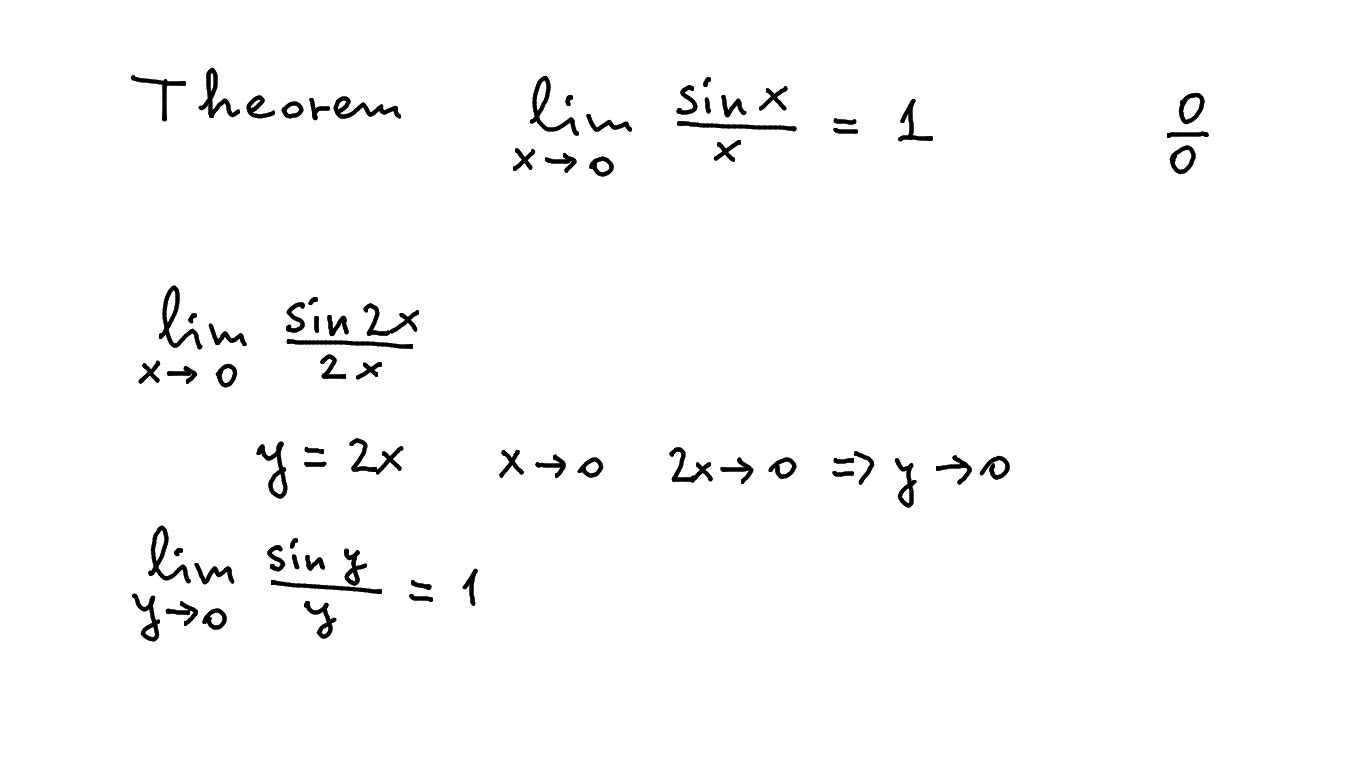 Theorem lim x→0 sin x / x = 1 0/0
lim x→0 sin 2x / 2x
y = 2x x→0 2x→0 ⇒ y→0
lim y→0 sin y / y = 1